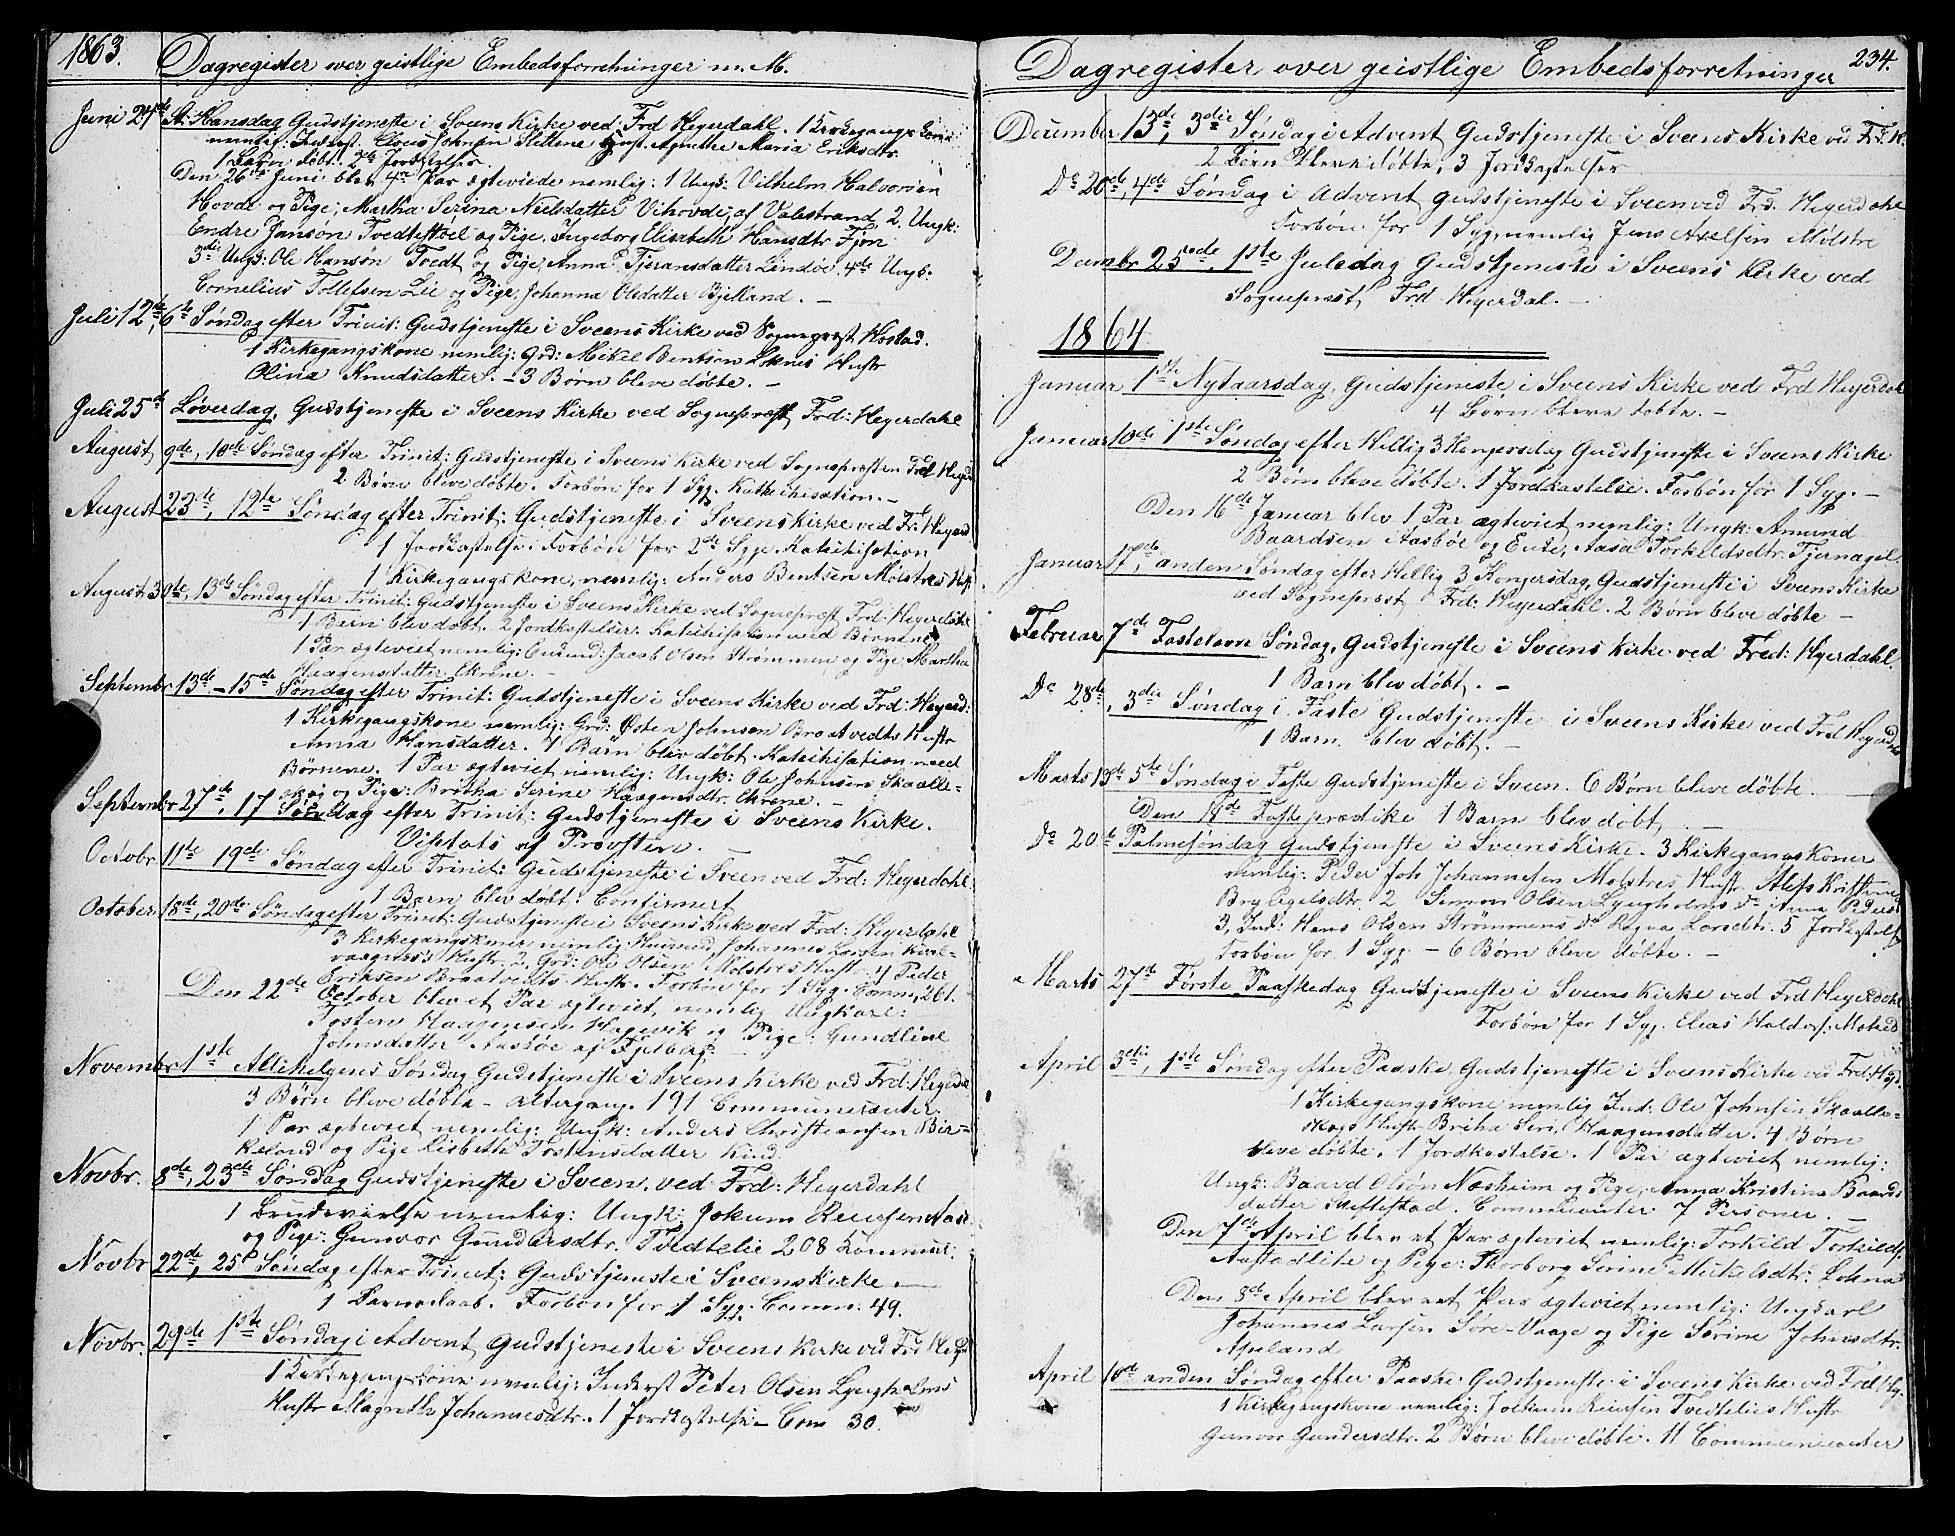 1863.
Dagregister over geistlige Embedsforretninger m. M.
Juni 24de St: Hansdag Gudstjeneste i Sveens Kirke ved Frd Heyerdahl. 1 Kirkegangskone
nemlig: Inderst Johnsen Hustr. Agnethe Maria Eriksdtr.
1 Barn døbt. 2de Jordkastelser.
Den 26de Juni blev 4re Par ægteviede nemlig: 1 Ungk: Vilhelm Halvorsen
Hovde og Pige, Martha Serina Neelsdatter Vihovde, af Valestrand 2. Ungk:
Endre Janson Tvedtestoel og Pige, Ingeborg Elisabeth Hansdtr Fjon
3die Ungk: Ole Hanson Tvedt og Pige, Anna Tjeransdatter Lindøe. 4de Ungk.
Cornelius Tollefsen Lie og Pige, Johanna Olsdatter Bjelland. —
Juli 12te, 6te Søndag efter Trinit: Gudstjeneste i Sveens Kirke ved Sognepræst Hostad.
1 Kirkegangskone nemlig: Grd: Mikel Bentsen Loknes Hustr
Olina Knudsdatter. — 3 Børn bleve døbte. —
Juli 25de Løverdag, Gudstjeneste i Sveens Kirke ved Sognepræst Frd: Heyerdahl
August 9de, 10de Søndag efter Trinit: Gudstjeneste i Sveens Kirke ved Sognepræsten Frd Heyd
2 Børn bleve døbte. Forbøn for 1 Syg. Katechisation. —
August 23de, 12te Søndag efter Trinit: Gudstjeneste i Sveens Kirke ved Fr: Heyerd
1 Jordkastelse. Forbøn for 2de Syge. Katechisation
1 Kirkegangskone, nemlig: Anders Bentsen Mølstres Hustr.
August 30te, 13de Søndag efter Trinit: Gudstjeneste i Sveens Kirke ved Sognepræst Frd. Heyerdahl
1 Barn blev døbt. 2 Jordkastelser. Katechisation med Børnene
1 Par ægteviet nemlig: Jacob Olsen Strømmen og Pige, Martha
Haagensdatter Ekrene. —
Septembr 13de — 15de Søndag efter Trinit: Gudstjeneste i Sveens Kirke ved Frd: Heyerd:
1 Kirkegangskone nemlig: Grd: Østen Johnson Braatvedts Hustr
Anna Hansdatter. 1 Barn blev døbt. Katechisation med
Børnene. 1 Par ægteviet nemlig: Ungk: Ole Johnsen Skaalle-
skog og Pige: Britha Serine Haagensdtr. Ekrene. —
Septembr 27de, 17 Søndag efter Trinit: Gudstjeneste i Sveens Kirke.
Visitats af Provsten.
Octobr. 11te 19de Søndag efter Trinit: Gudstjeneste i Sveen ved Frd: Heyerdahl
1 Barn blev døbt. Confirmert
October 18de, 20de Søndag efter Trinit: Gudstjeneste i Sveens Kirke ved Frd: Heyerdahl
3 Kirkegangskoner nemlig: Huusmd Johannes Larsen
Hustr. 2. Grd: Ole Olsen Mølstres Hustr 4 Peder
Eriksen Braatvedts Hustr. Forbøn for 1 Syg. Comm, 261.
Den 22de October blev et Par ægteviet, nemlig Ungkarl:
Tosten Haagensen Hagevik og Pige: Gundline
Johnsdatter Aasbøe af Fjelberg.
Novembr 1ste Allehelgens Søndag Gudstjeneste i Sveens Kirke ved Frd: Heyerda
3 Børn bleve døbte — Altergang. 191 Communicanter.
1 Par ægteviet nemlig: Ungk: Anders Christiansen Bir-
keland og Pige Lisbethe Tostensdatter Kind.
Novbr. 8de, 23de Søndag Gudstjeneste i Sveen. ved Frd: Heyerdahl
1 Brudevielse nemlig: Ungk: Jokum
og Pige: Gunvor Gundersdtr. Tvedtelie 208 Commun:
Novbr 22de, 25de Søndag efter Trinit: Gudstjeneste i Sveens Kirke. —
1 Barnedaab. Forbøn for 1 Syg. Comm: 49.
Novbr. 29de 1ste Søndag i Advent, Gudstjeneste i Sveens Kirke ved Frd Heyd
1 Kirkegangskone nemlig: Inderst Peter Olsen Lyngholms
Hustr Magrethe Johannesdtr. 1 Jordkastelse — Com 30.
Dagregister over geistlige Embedsforretninger
234.
December 13de, 3die Søndag i Advent Gudstjeneste i Sveens Kirke ved Frd. H.
2 Børn bleve døbte, 3 Jordkastelser
Do 20de, 4de Søndag i Advent Gudstjeneste i Sveen ved Frd. Heyerdahl
Forbøn for 1 Syg, nemlig Jens Axelsen Mølstre
Decembr 25de, 1ste Juledag Gudstjeneste i Sveens Kirke ved
Sognepræst Frd Heyerdal. —
1864
Januar 1ste Nytaarsdag, Gudstjeneste i Sveens Kirke ved Frd Heyerdal
4 Børn bleve døbte. —
Januar 10de 1ste Søndag efter Hellig 3 Kongersdag Gudstjeneste i Sveens Kirke
2 Børn bleve døbte. 1 Jordkastelse. Forbøn for 1 Syg. —
Den 16de Januar blev 1 Par ægteviet nemlig: Ungk: Amund
Baardsen Aasbøe og Enke, Aasa Torkildsdtr. Tjernagel.
Januar 17de, anden Søndag efter Hellig 3 Kongersdag, Gudstjeneste i Sveens Kirke
ved Sognepræst Frd: Heyerdahl. 2 Børn bleve døbte —
Februar 7de Fastelavn Søndag, Gudstjeneste i Sveens Kirke ved Fred: Heyerdahl.
1 Barn blev døbt. —
Do 28de, 3die Søndag i Faste Gudstjeneste i Sveens Kirke ved Frd Heyerdahl
1 Barn blev døbt. —
Marts 13de 5te Søndag i Faste Gudstjeneste i Sveen. 6 Børn bleve døbte.
Den 18de Fasteprædike 1 Barn blev døbt —
Do 20de Palmesøndag Gudstjeneste i Sveens Kirke. 3 Kirkegangskoner
nemlig: Peder Joh Johannesen Mølstres Hustr
2 Simon Olsen Lyngholms Do Anna Peders
3, Ind: Hans Olsen Strømmens Do Ragna Larsdtr. 5 Jordkastelser
Forbøn for 1 Syg — 6 Børn bleve døbte. —
Marts 27de Første Paaskedag Gudstjeneste i Sveens Kirke ved Frd Heyerdahl
Forbøn for 1 Syg. Elias
April 3die, 1ste Søndag efter Paaske Gudstjeneste i Sveens Kirke ved Frd: Heyd.
1 Kirkegangskone nemlig Ind: Ole Johnsen Skaalle-
skogs Hustr Britha Seri. Haagensdatter. 4 Børn
bleve døbte. 1 Jordkastelse. 1 Par ægteviet nemlig:
Ungk: Baard Olsøn Næsheim og Pige, Anna Kristina Baards
datter Communicanter 7 Personer. —
Den 7de April blev et Par ægteviet nemlig: Torkild Torkilds.
og Pige: Thorborg Serine Mickelsdtr: Lohna
Den 8de April blev et Par ægteviet nemlig: Ungkarl
Johannes Larsen Søre-Vaage og Pige Serine Johnsdtr.
Apeland
April 10de anden Søndag efter Paaske Gudstjeneste i Sveens Kirke ved Frd Hey.
1 Kirkegangskone nemlig: Jokum Tvedtelies Hustr
Gunvor Gundersdtr. 2 Børn bleve døbte. 11 Communicanter